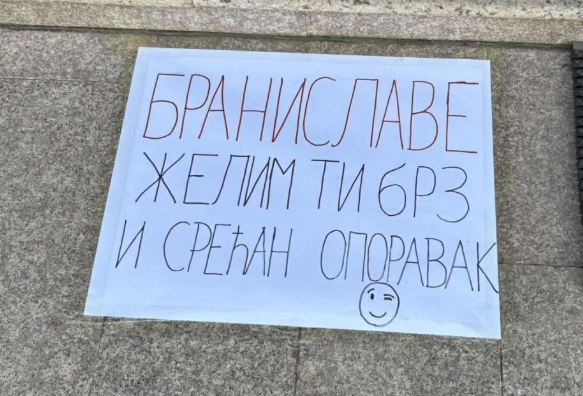 БРАНИСЛАВЕ
ЖЕЛИМ ТИ БРЗ
И СРЕЋАН ОПОРАВАК